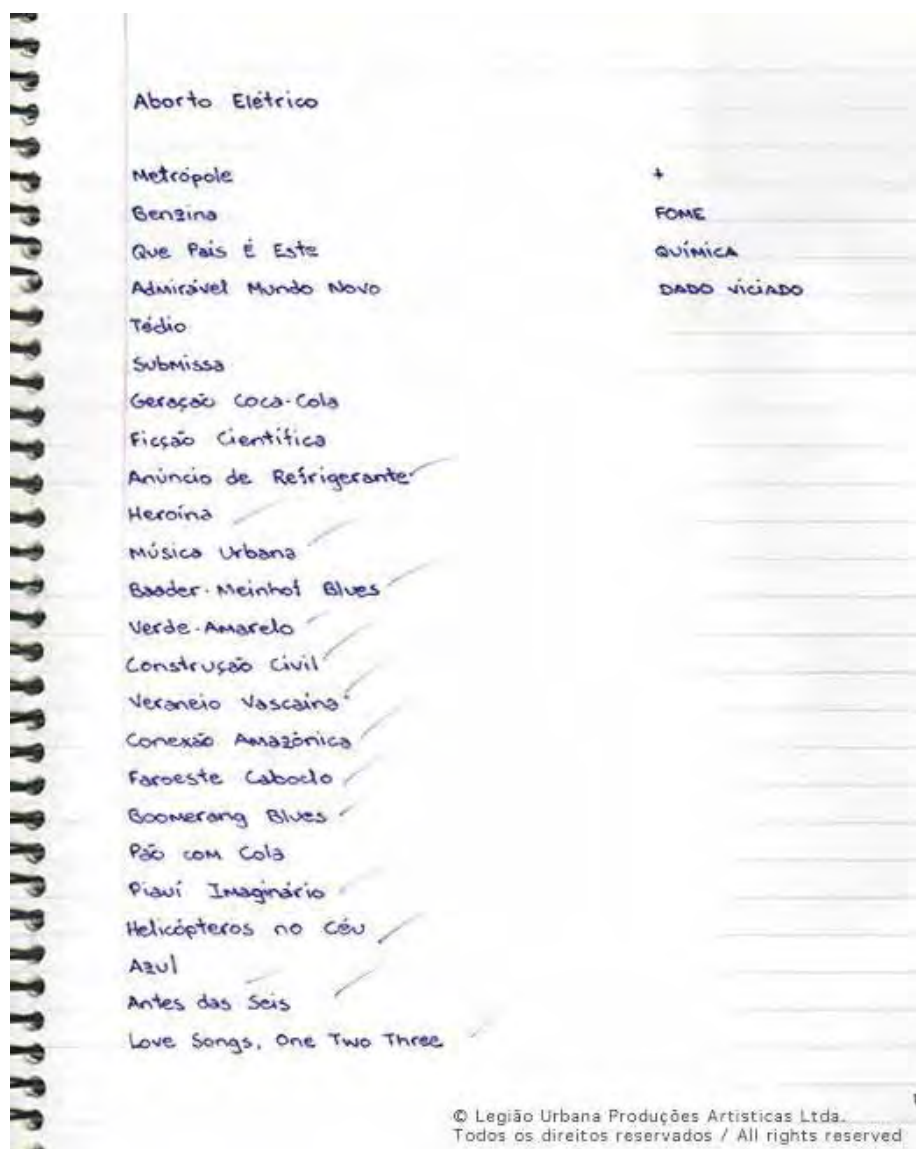 Aborto Elétrico
Metrópole
Benzina
Que País É Este
Admirável Mundo Novo
Tédio
Submissa
Geração Coca-Cola
Ficção Científica
Anúncio de Refrigerante
Heroína
Música Urbana
Baader-Meinhof Blues
Verde-Amarelo
Construção Civil
Veraneio Vascaína
Conexão Amazônica
Faroeste Caboclo
Boomerang Blues
Pão com Cola
Piauí Imaginário
Helicópteros no Céu
Azul
Antes das Seis
Love Songs, One Two Three
+
FOME
QUÍMICA
DADO VICIADO
© Legião Urbana Produções Artisticas Ltda.
Todos os direitos reservados / All rights reserved